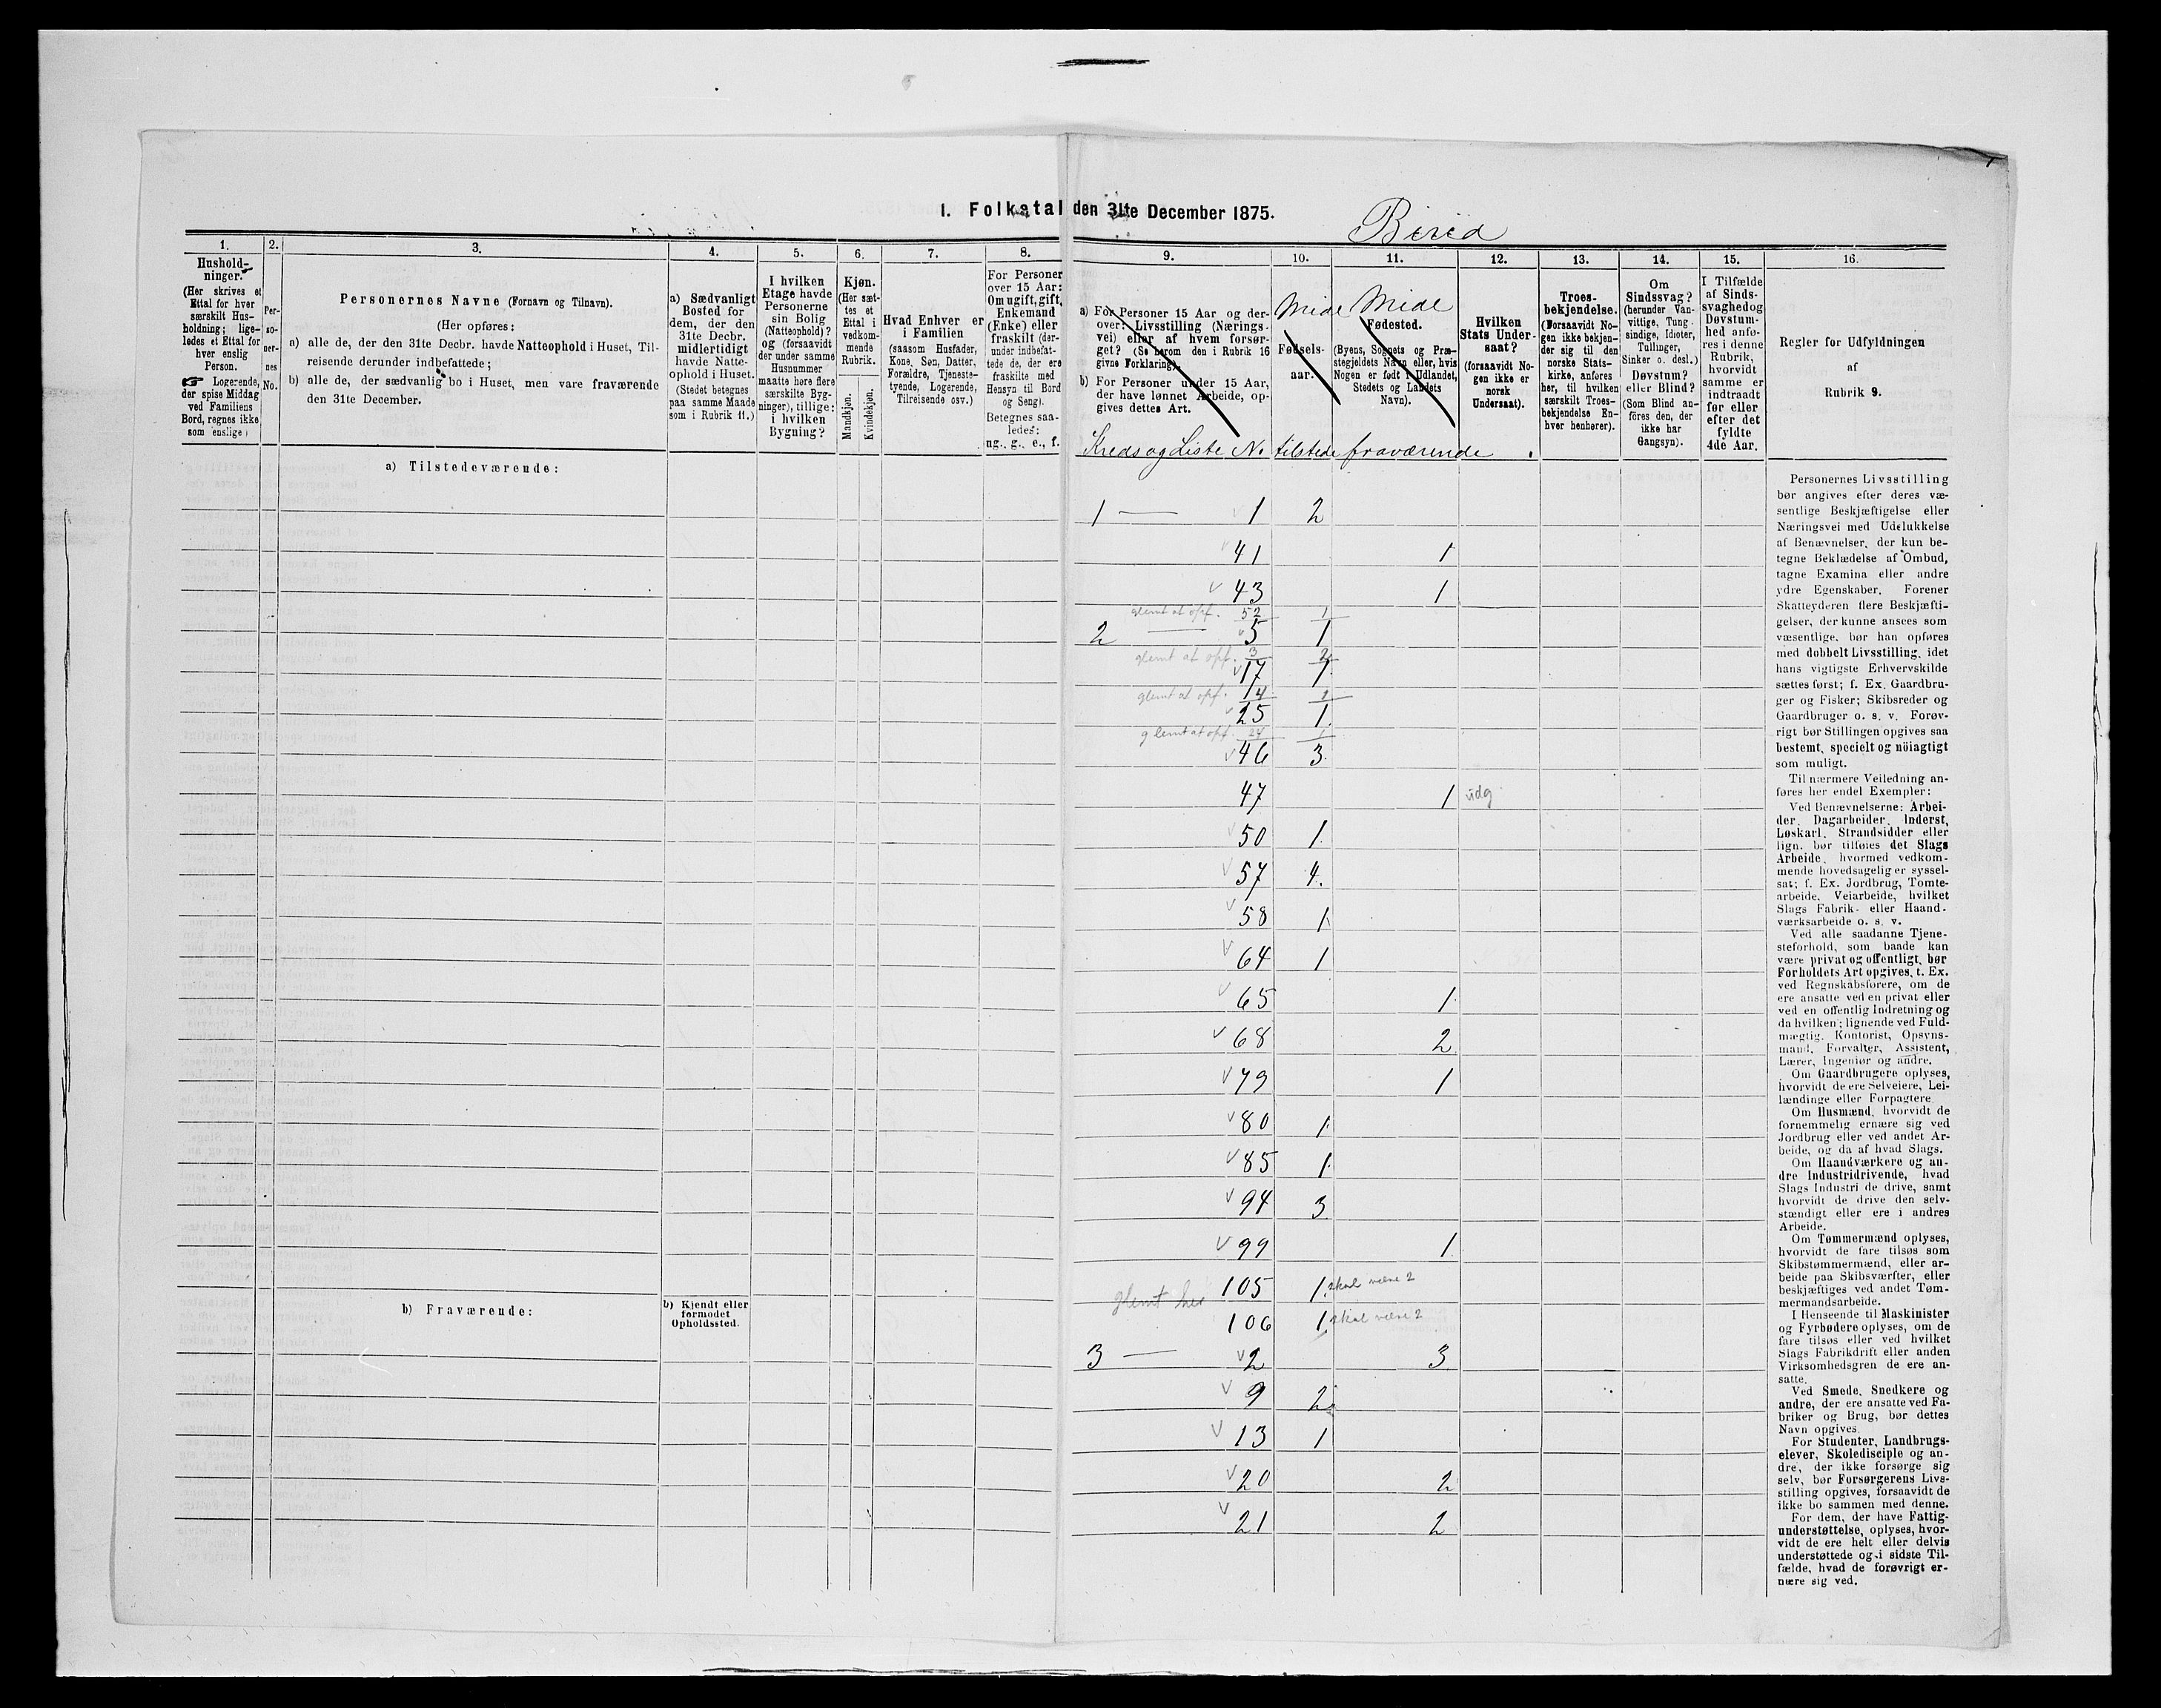 I. Folketal den 31te December 1875.
Birid
1. 2. 3. 4. 5. 6. 7. 8. 9. 10. 11. 12. 13. 14. 15. 16.
Hushold-
ninger.
(Her skrives et
Ettal for hver
særskilt Hus-
holdning; lige-
ledes et Ettal for
hver enslig
Person.
☞ Logerende,
der spise Middag
ved Familiens
Bord, regnes ikke
som enslige)
Per-
so-
ner-
nes
No.
Personernes Navne (Fornavn og Tilnavn).
(Her opføres:
a) alle de, der den 31te Decbr. havde Natteophold i Huset, Til-
reisende derunder indbefattede;
b) alle de, der sædvanlig bo i Huset, men vare fraværende
den 31te December.
a) Sædvanligt
Bosted for
dem, der den
31te Decbr.
midlertidigt
havde Natte-
ophold i Huset.
(Stedet betegnes
paa samme Maade
som i Rubrik 11.)
I hvilken
Etage havde
Personerne
sin Bolig
(Natteophold)?
og (forsaavidt
der under samme
Husnummer
maatte høre flere
særskilte Byg-
ninger), tillige:
i hvilken
Bygning?
Kjøn.
(Her sæt-
tes et
Ettal i
vedkom-
mende
Rubrik.
Mandkjøn.
Kvindekjøn.
Hvad Enhver er
i Familien
(saasom Husfader,
Kone, Søn, Datter,
Forældre, Tjeneste-
tyende, Logerende,
Tilreisende osv.)
For Personer
over 15 Aar:
Om ugift, gift,
Enkemand
(Enke) eller
fraskilt (der-
under indbefat-
tede de, der ere
fraskilte med
Hensyn til Bord
og Seng).
Betegnes saa-
ledes:
ug., g., e., f.
a) For Personer 15 Aar og der-
over: Livsstilling (Nærings-
vei) eller af hvem forsør-
get? (Se herom den i Rubrik 16
givne Forklaring).
b) For Personer under 15 Aar,
der have lønnet Arbeide, op-
gives dettes Art.
Midl
Fødsels-
aar.
Midl
Fødested.
(Byens, Sognets og Præ-
stegjeldets Navn eller, hvis
Nogen er født i Udlandet,
Stedets og Landets
Navn).
Hvilken
Stats Under-
saat?
(forsaavidt No-
gen ikke er
norsk
Undersaat).
Troes-
bekjendelse.
(Forsaavidt No-
gen ikke bekjen-
der sig til den
norske Stats-
kirke, anføres
her, til hvilken
særskilt Troes-
bekjendelse En-
hver henhører).
Om
Sindssvag?
(herunder Van-
vittige, Tung-
sindige, Idioter,
Tullinger,
Sinker o. desl.)
Døvstum?
eller Blind?
(Som Blind an-
føres den, der
ikke har
Gangsyn).
I Tilfælde
af Sinds-
svaghed og
Døvstum-
hed anfø-
res i denne
Rubrik,
hvorvidt
samme er
indtraadt
før eller
efter det
fyldte
4de Aar.
Regler for Udfyldningen
af
Rubrik 9.
Kreds og Liste No tilstede fraværende
a) Tilstedeværende:
1 — 1 2
41 1
43 1
glemt at opf. 52 1
2 — 5 1
glemt at opf. 3 2
17 1
glemt at opf. 14 1
25 1
glemt at opf. 24 1
46 3
47 1 udg
50 1
57 4
58 1
64 1
65 1
68 2
79 1
80 1
85 1
94 3
99 1
105 1 skal være 2
glemt her
106 1 skal være 2
b) Fraværende:
b) Kjendt eller
formodet
Opholdssted.
3 — 2 3
9 2
13 1
20 2
21 2
Personernes Livsstilling
bør angives efter deres væ-
sentlige Beskjæftigelse eller
Næringsvei med Udelukkelse
af Benævnelser, der kun be-
tegne Beklædelse af Ombud,
tagne Examina eller andre
ydre Egenskaber. Forener
Skatteyderen flere Beskjæfti-
gelser, der kunne ansees som
væsentlige, bør han opføres
med dobbelt Livsstilling, idet
hans vigtigste Erhvervskilde
sættes først; f. Ex. Gaardbru-
ger og Fisker; Skibsreder og
Gaardbruger o. s. v. Forøv-
rigt bør Stillingen opgives saa
bestemt, specielt og nöiagtigt
som muligt.
Til nærmere Veiledning an-
føres her endel Exempler:
Ved Benævnelserne: Arbei-
der, Dagarbeider, Inderst,
Løskarl, Strandsidder eller
lign. bør tilføies det Slags
Arbeide, hvormed vedkom-
mende hovedsagelig er syssel-
sat; f. Ex. Jordbrug, Tomte-
arbeide, Veiarbeide, hvilket
Slags Fabrik- eller Haand-
værksarbeide o. s. v.
Ved alle saadanne Tjene-
steforhold, som baade kan
være privat og offentligt, bør
Forholdets Art opgives, t. Ex.
ved Regnskabsførere, om de
ere ansatte ved en privat eller
ved en offentlig Indretning og
da hvilken; lignende ved Fuld-
mægtig, Kontorist, Opsyns-
mand, Forvalter, Assistent,
Lærer, Ingeniør og andre.
Om Gaardbrugere oplyses,
hvorvidt de ere Selveiere, Lei-
lændinge eller Forpagtere.
Om Husmænd, hvorvidt de
fornemmelig ernære sig ved
Jordbrug eller ved andet Ar-
beide, og da af hvad Slags.
Om Haandværkere og an-
dre Industridrivende, hvad
Slags Industri de drive, samt
hvorvidt de drive den selv-
stændigt eller ere i andres
Arbeide.
Om Tømmermænd oplyses,
hvorvidt de fare tilsøs som
Skibstømmermænd, eller ar-
beide paa Skibsværfter, eller
beskjæftiges ved andet Tøm-
mermandsarbeide.
I Henseende til Maskinister
og Fyrbødere oplyses, om de
fare tilsøs eller ved hvilket
Slags Fabrikdrift eller anden
Virksomhedsgren de ere an-
satte.
Ved Smede, Snedkere og
andre, der ere ansatte ved Fa-
briker og Brug, bør dettes
Navn opgives.
For Studenter, Landbrugs-
elever, Skoledisciple og an-
dre, der ikke forsørge sig
selv, bør Forsørgerens Livs-
stilling opgives, forsaavidt de
ikke bo sammen med denne.
For dem, der have Fattig-
understøttelse, oplyses, hvor-
vidt de ere helt eller delvis
understøttede og i sidste Til-
fælde, hvad de forøvrigt er-
nære sig ved.